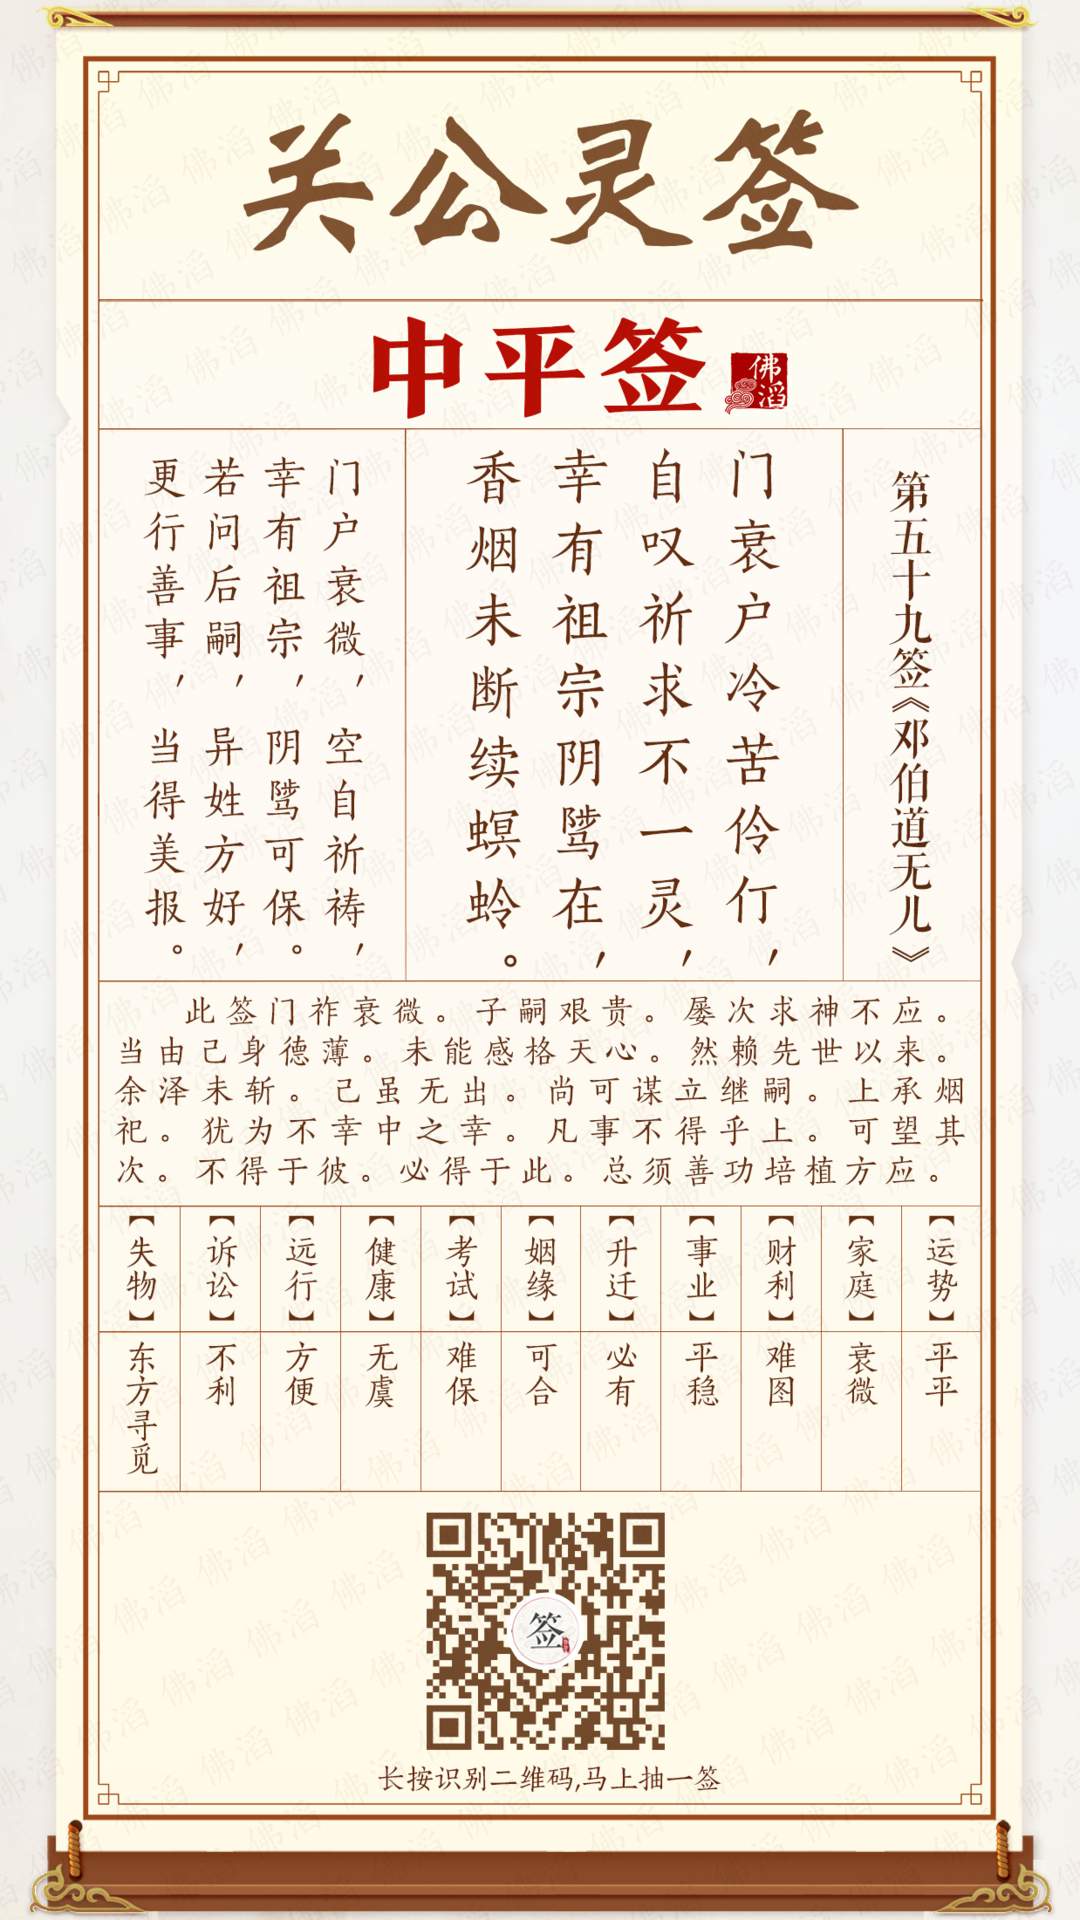 关公灵签
中平签
佛滔
第五十九签《邓伯道无儿》
门衰户冷苦伶仃，
自叹祈求不一灵，
幸有祖宗阴骘在，
香烟未断续螟蛉。
门户衰微，空自祈祷，
幸有祖宗，阴骘可保。
若问后嗣，异姓方好，
更行善事，当得美报。
此签门祚衰微。子嗣艰贵。屡次求神不应。
当由己身德薄。未能感格天心。然赖先世以来。
余泽未斩。己虽无出。尚可谋立继嗣。上承烟
祀。犹为不幸中之幸。凡事不得乎上。可望其
次。不得于彼。必得于此。总须善功培植方应。
【运势】
平平
【家庭】
衰微
【财利】
难图
【事业】
平稳
【升迁】
必有
【姻缘】
可合
【考试】
难保
【健康】
无虞
【远行】
方便
【诉讼】
不利
【失物】
东方寻觅
签
长按识别二维码,马上抽一签